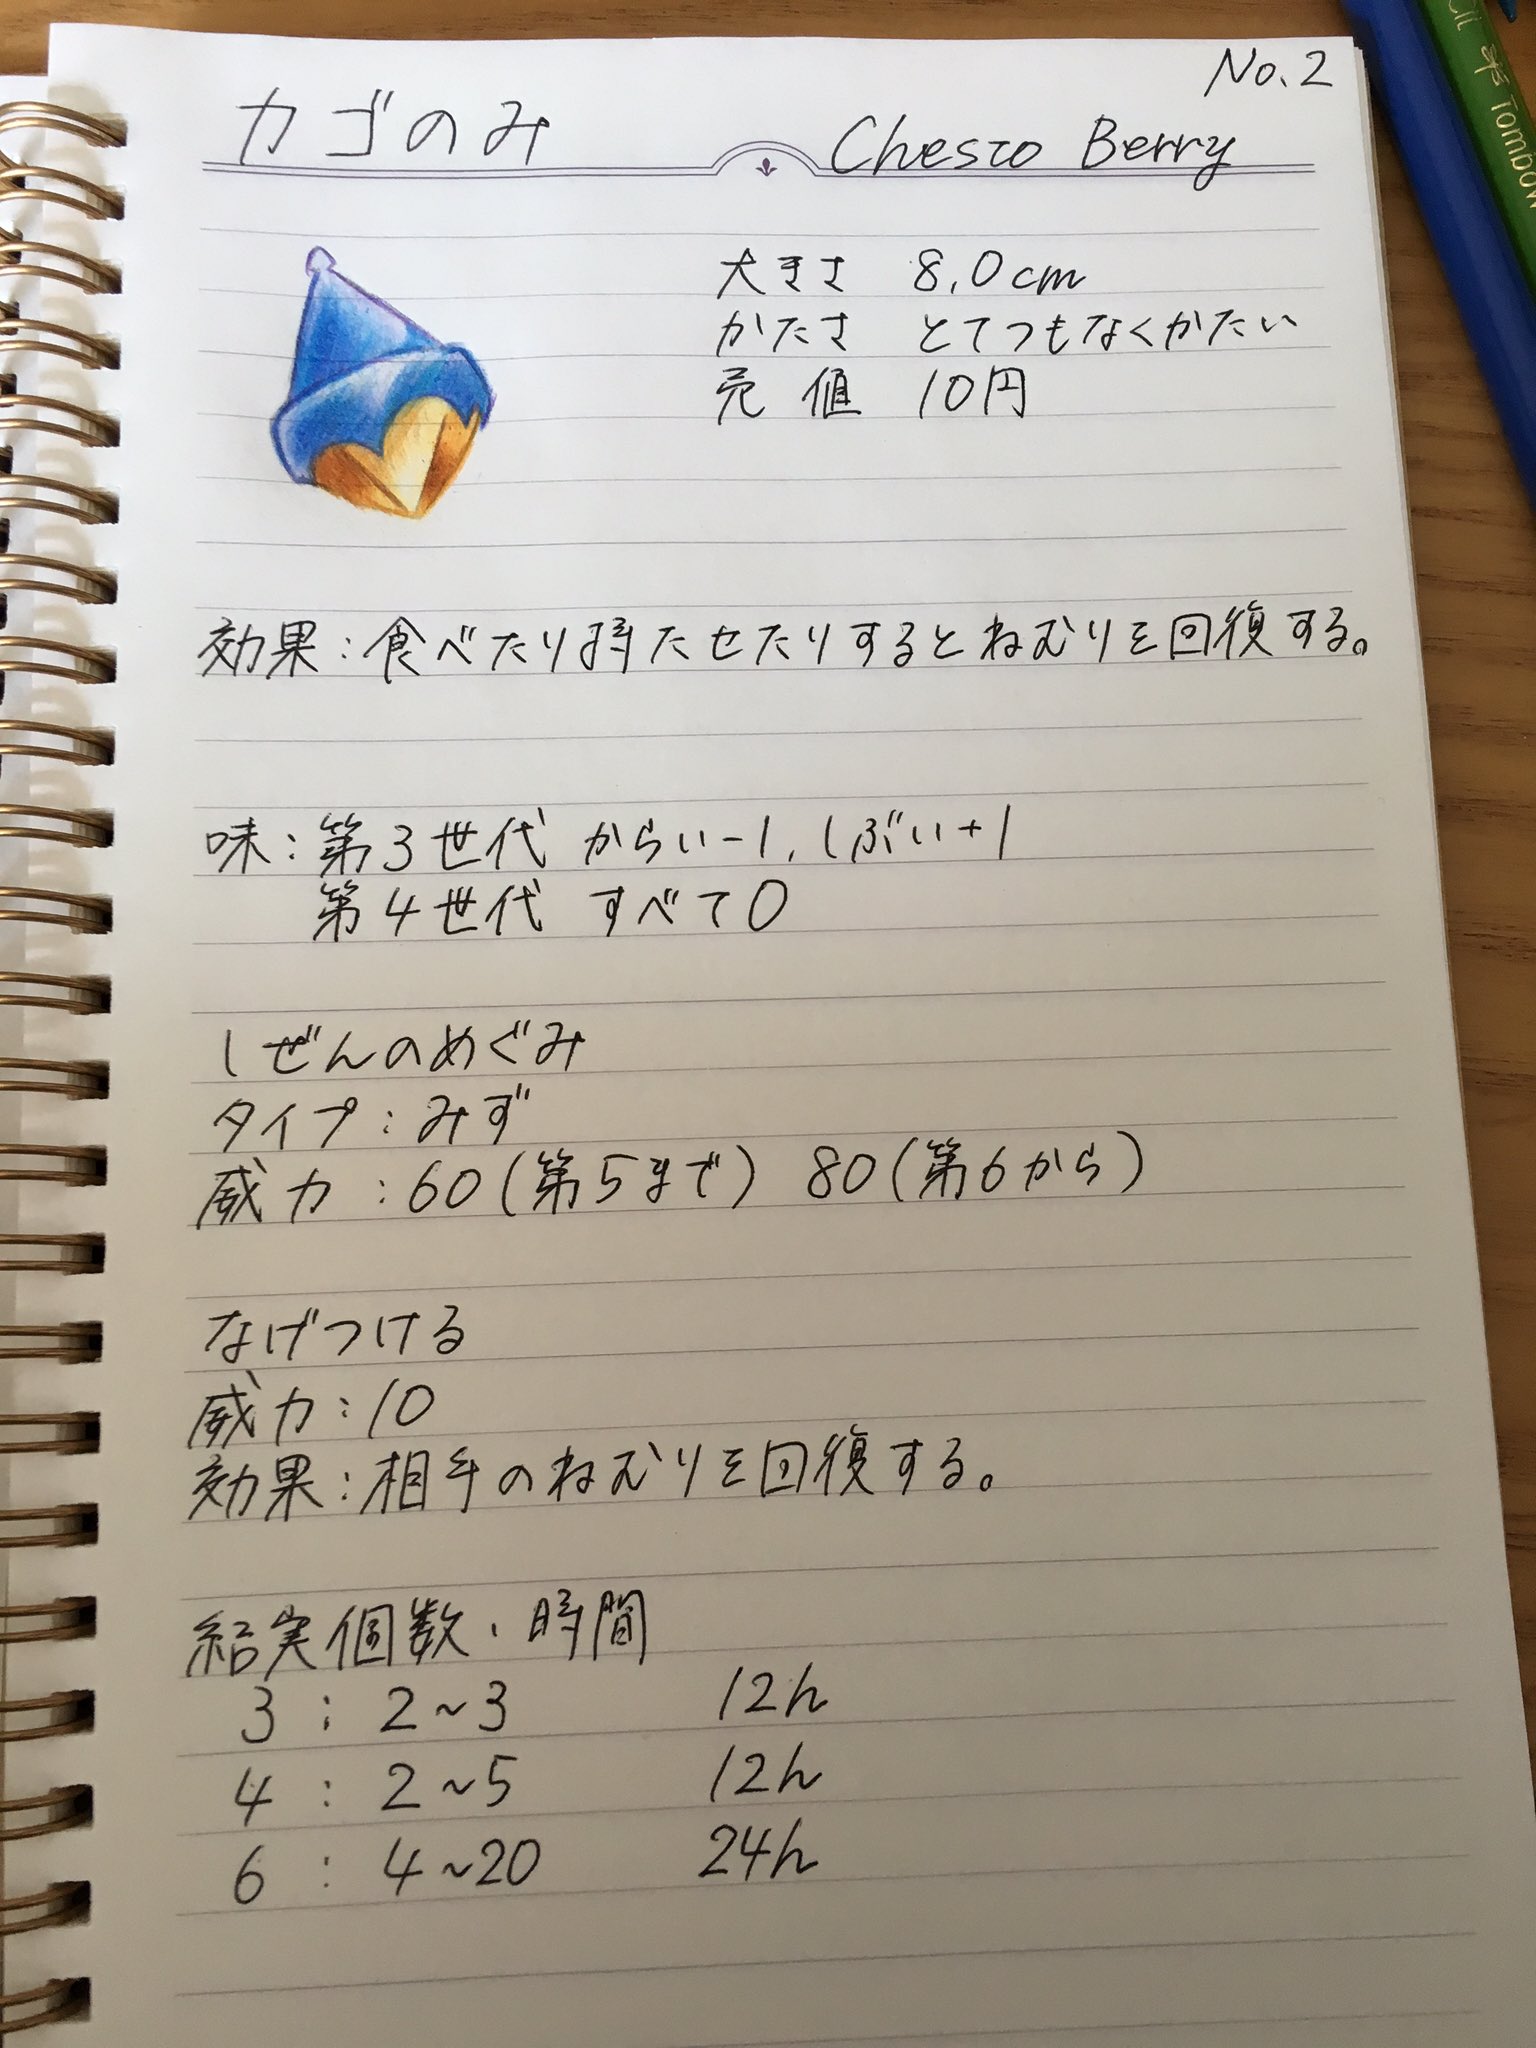 No.2
カゴのみ Chesto Berry
大きさ 8.0cm
かたさ とてつもなくかたい
売値 10円
効果:食べたり持たせたりするとねむりを回復する。
味:第3世代 からい-1, しぶい+1
第4世代 すべて0
しぜんのめぐみ
タイプ:みず
威力:60(第5まで) 80(第6から)
なげつける
威力:10
効果:相手のねむりを回復する。
結実個数、時間
3:2~3 12h
4:2~5 12h
6:4~20 24h
Tombow